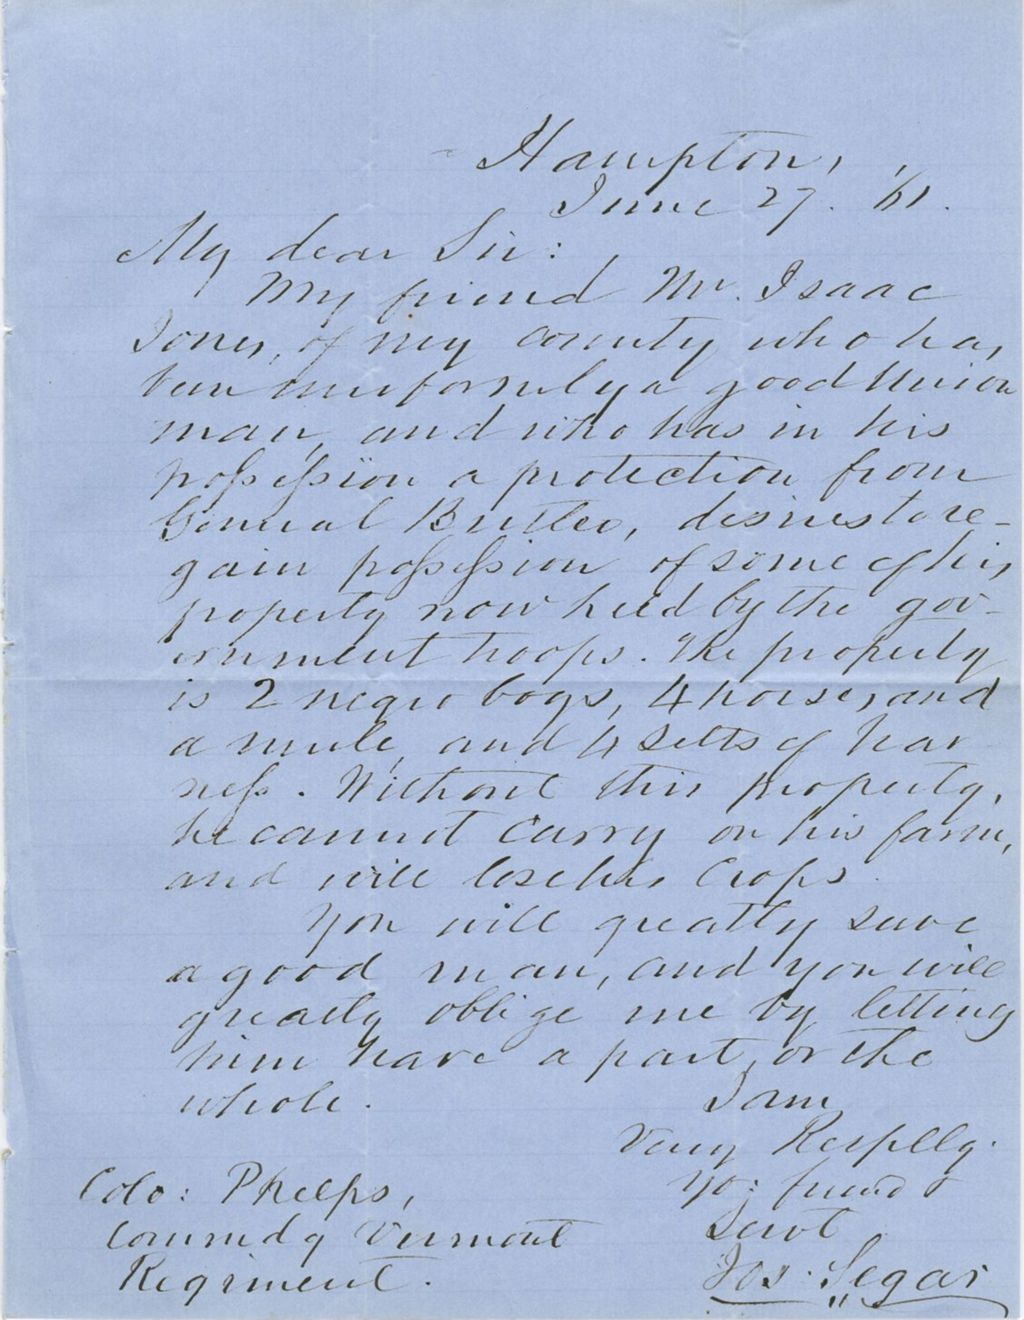 Hampton,
June 27. '61.
My dear Sir:
My friend Mr. Isaac
Jones, of my county who has
been uniformly a good Union
man, and who has in his
possession a protection from
General Butler, desires to re-
gain possession of some of his
property now held by the gov-
ernment troops. The property
is 2 negro boys, 4 horses, and
a mule, and 4 setts of har
ness. Without this property,
he cannot carry on his farm,
and will lose his crops.
You will greatly serve
a good man, and you will
greatly oblige me by letting
him have a part, or the
whole.
I am
Very Respflly.
Yo: friend &
Servt
Jos: Segar
Colo: Phelps,
Commdg Vermont
Regiment.